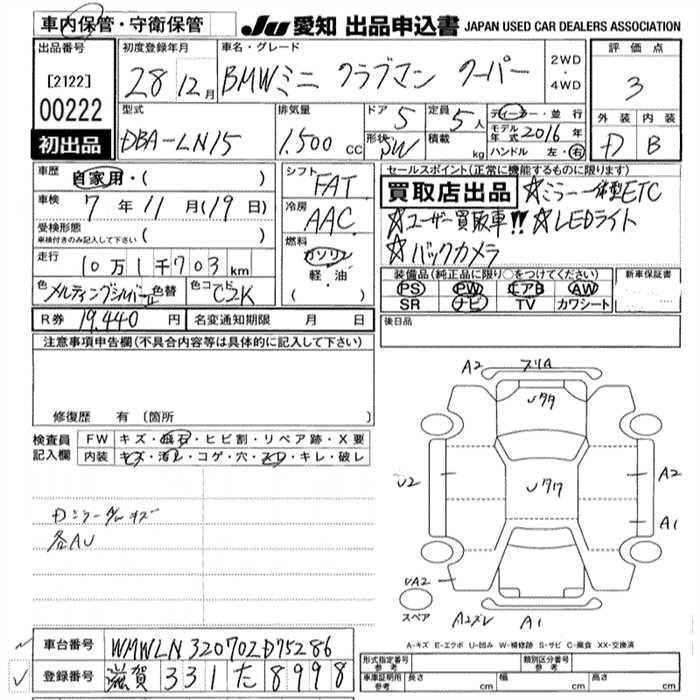 車内保管・守衛保管
JU 愛知 出品申込書 JAPAN USED CAR DEALERS ASSOCIATION
出品番号
[2122]
00222
初出品
初度登録年月
28 12月
車名・グレード
BMWミニ クラブマン クーパー
2WD
・
4WD
評価点
3
外装 内装
D B
型式
DBA-LN15
排気量
1.500 cc
ドア 5
形状 SW
定員 5人
積載 kg
ディーラー・並行
モデル年式 2016年
ハンドル 左・右
車歴
自家用・( )
車検
7年 11月(19日)
受検形態
車検付きのみ記入して下さい ( )
走行
10万1千703km
色 メルティングシルバーII 色替
色コード C2K
シフト
FAT
冷房
AAC
燃料
ガソリン
軽・油
( )
セールスポイント(正常に機能するものに限ります)
買取店出品 ☆ミラー一体型ETC
☆ユーザー買取車!! ☆LEDライト
☆バックカメラ
装備品(純正品に限り○をつけてください)
PS PW エアB AW
SR ナビ TV カワシート
新車保証書
R券 19.440円 名変通知期限 月 日
後日品
注意事項申告欄(不具合内容等は具体的に記入して下さい)
修復歴 有 〔箇所
検査員記入欄
FW キズ・飛石・ヒビ割・リペア跡・X要
内装 キズ・汚レ・コゲ・穴・スレ・キレ・破レ
各AU
A2
Uタワ
U2
Uタワ
A2
A1
UA2
スペア
A2ズレ A1
A-キズ E-エクボ U-凹み W-補修跡 S-サビ C-腐食 XX-交換済
車台番号 WMWLN320702D75286
登録番号 滋賀 331 た 8998
形式指定番号 参考
類別区分番号 参考
車庫証明用 参考 長さ cm 幅 cm 高さ cm